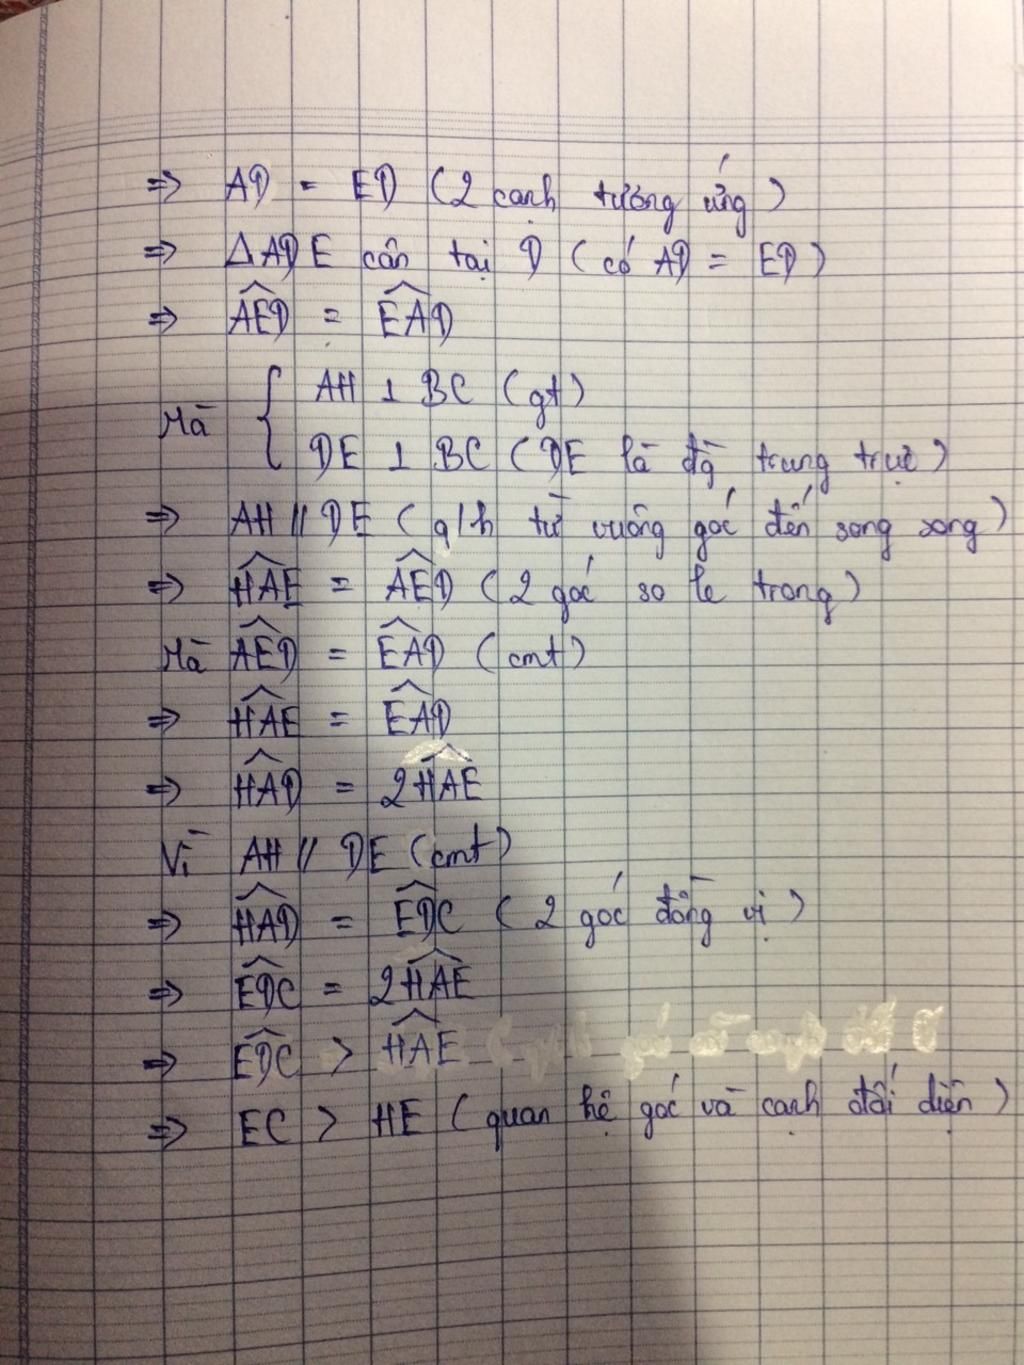 ⇒ AD = ED (2 cạnh tương ứng)
⇒ ΔADE cân tại D (có AD = ED)
⇒ \widehat{AED} = \widehat{EAD}
Mà { AH ⊥ BC (gt)
DE ⊥ BC (DE là đg trung trực)
⇒ AH // DE (q/h từ vuông góc đến song song)
⇒ \widehat{HAE} = \widehat{AED} (2 góc so le trong)
Mà \widehat{AED} = \widehat{EAD} (cmt)
⇒ \widehat{HAE} = \widehat{EAD}
⇒ \widehat{HAD} = 2\widehat{HAE}
Vì AH // DE (cmt)
⇒ \widehat{HAD} = \widehat{EDC} (2 góc đồng vị)
⇒ \widehat{EDC} = 2\widehat{HAE}
⇒ \widehat{EDC} > \widehat{HAE}
⇒ EC > HE (quan hệ góc và cạnh đối diện)